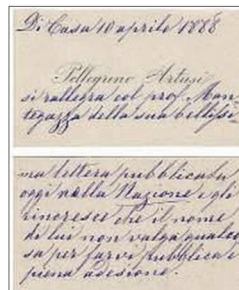 Di Casa 10 aprile 1888
Pellegrino Artusi
si rallegra col prof. Man-
tegazza della sua bellissi-
ma lettera pubblicata
oggi nella Nazione e gli
rincresce che il nome
di lui non valga qualco-
sa per farvi pubblica e
piena adesione.